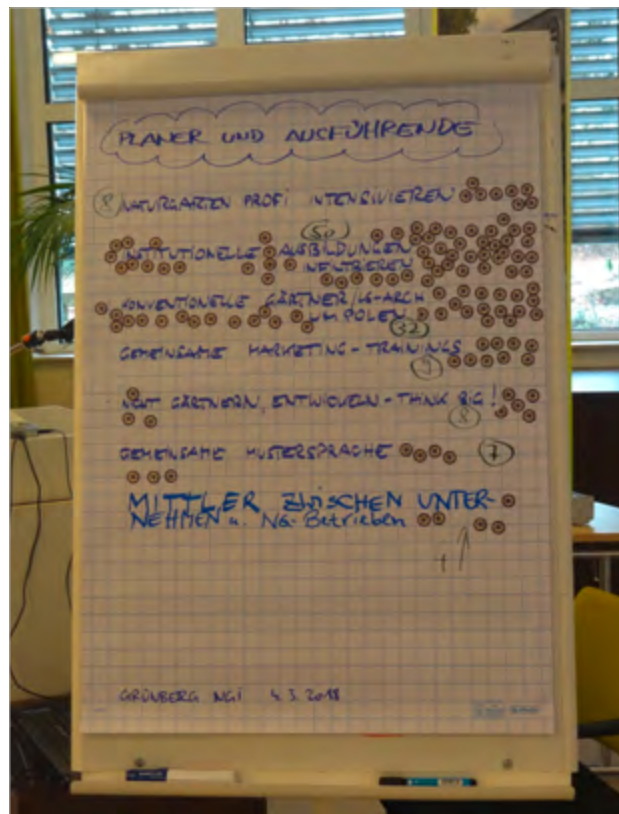 PLANER UND AUSFÜHRENDE
8 NATURGARTEN PROFI INTENSIVIEREN
50
INSTITUTIONELLE AUSBILDUNGEN
INFILTRIEREN
KONVENTIONELLE GÄRTNER/LG-ARCH
UMPOLEN 32
GEMEINSAME MARKETING-TRAININGS
9
NICHT GÄRTNERN, ENTWICKELN - THINK BIG!
8
GEMEINSAME MUSTERSPRACHE 7
MITTLER ZWISCHEN UNTER-
NEHMEN u. NG-Betrieben
GRÜNBERG NGI 4.3.2018